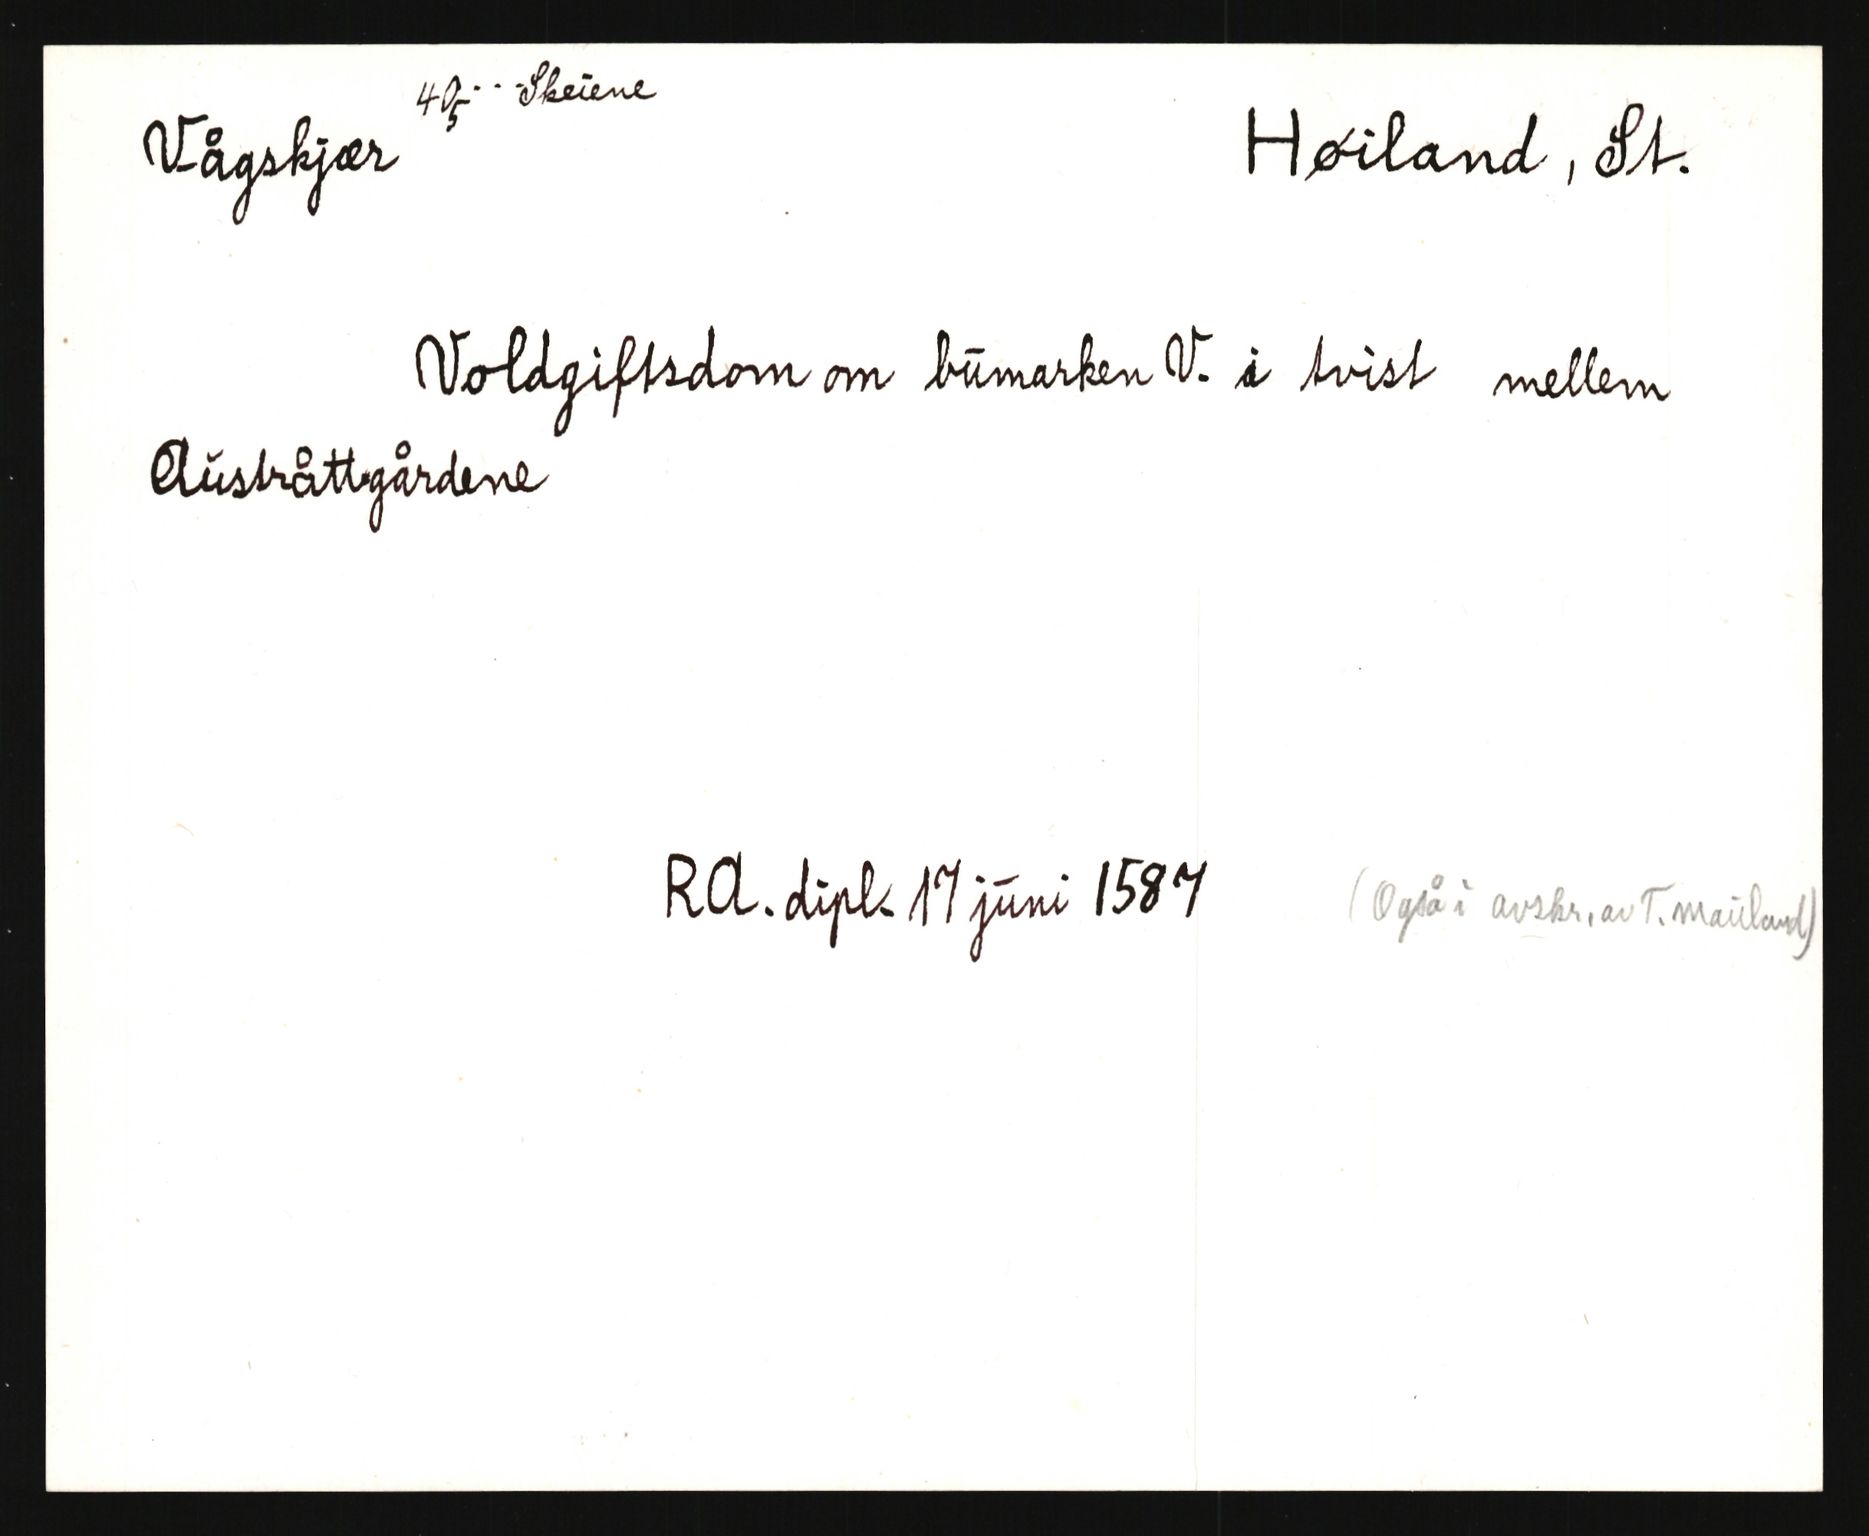 Vågskjær
40 5 - - - Skeiene
Høiland, St.
Voldgiftsdom om bumarken V. i tvist mellem
Austråttgårdene
RA. dipl. 17 juni 1587
(Også i avskr. av T. Mauland)